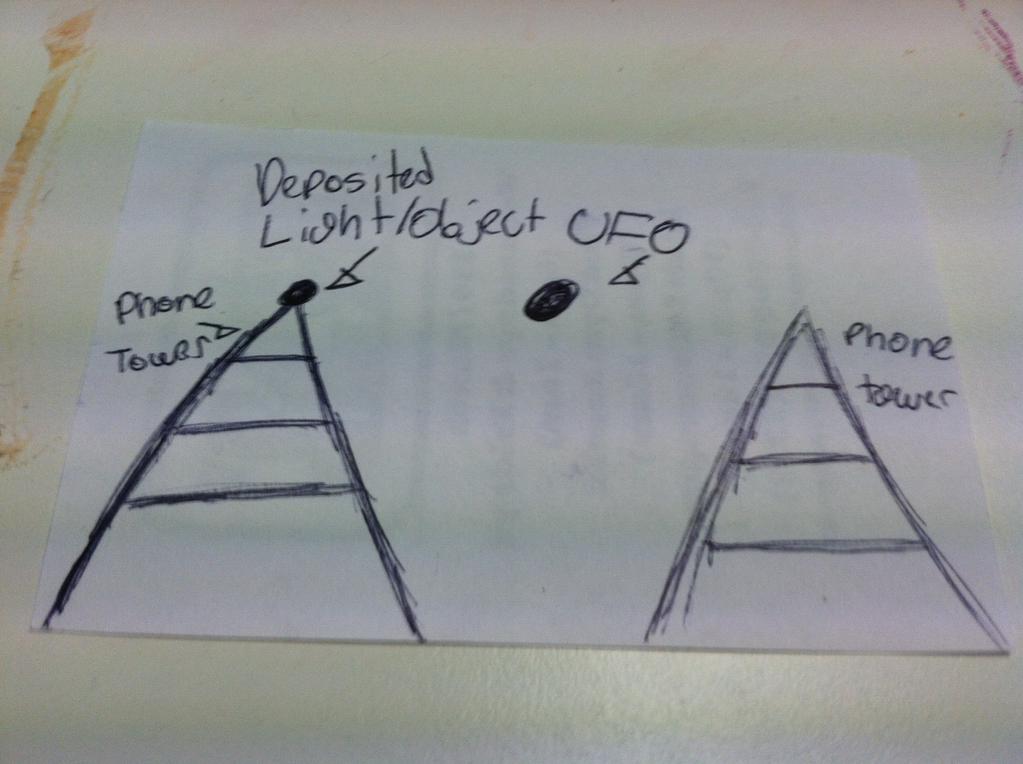 Deposited
Light/Object UFO
Phone
Tower
Phone
tower